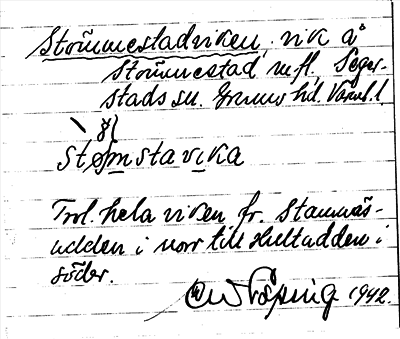 Strömmestadviken, vik å
Strömmestad m.fl., Seger-
stads sn. Grums hd. Värml. l.
stømstavıka
Trol. hela viken fr. Stamnäs-
udden i norr till Hultudden i
söder.
1942.